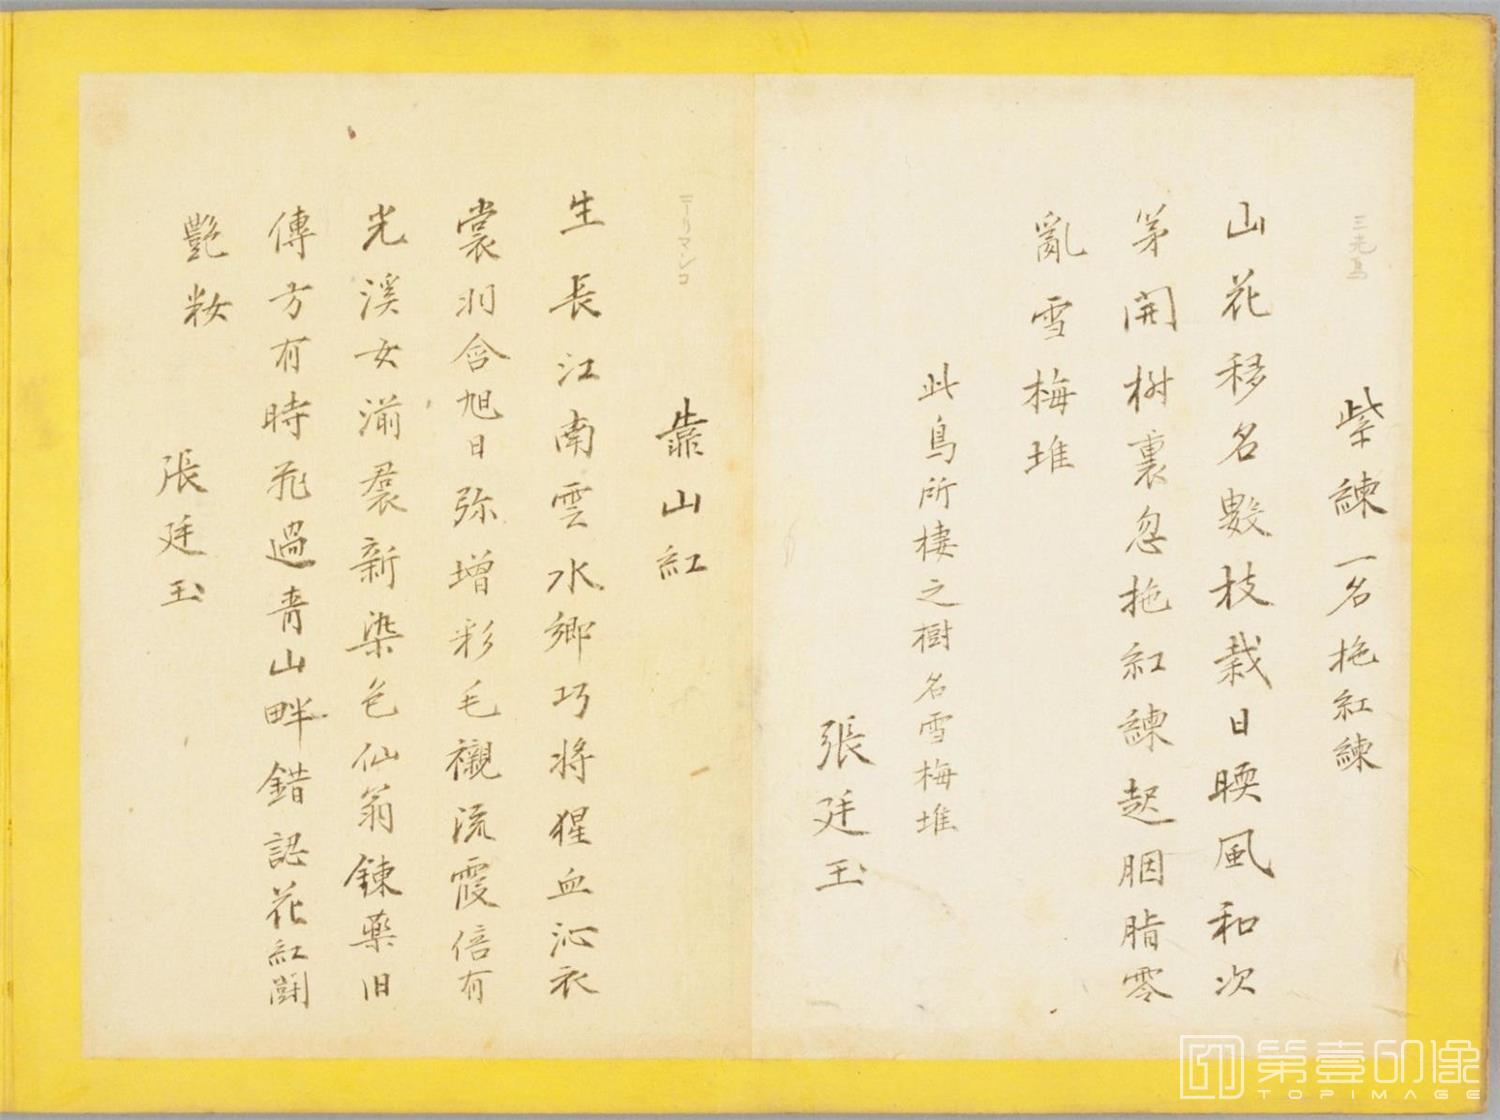 三光鳥
紫練一名拖紅練
山花移名數枝栽日暎風和次
苐開樹裏忽拖紅練起胭脂零
亂雪梅堆
此鳥所棲之樹名雪梅堆
張廷玉
ニーリマシコ
靠山紅
生長江南雲水鄉巧將猩血沁衣
裳羽含旭日弥增彩毛襯流霞倍有
光溪女湔裠新染色仙翁鍊藥旧
傳方有時飛過青山畔錯認花紅鬭
艷粧
張廷玉
第壹印像
TOPIMAGE